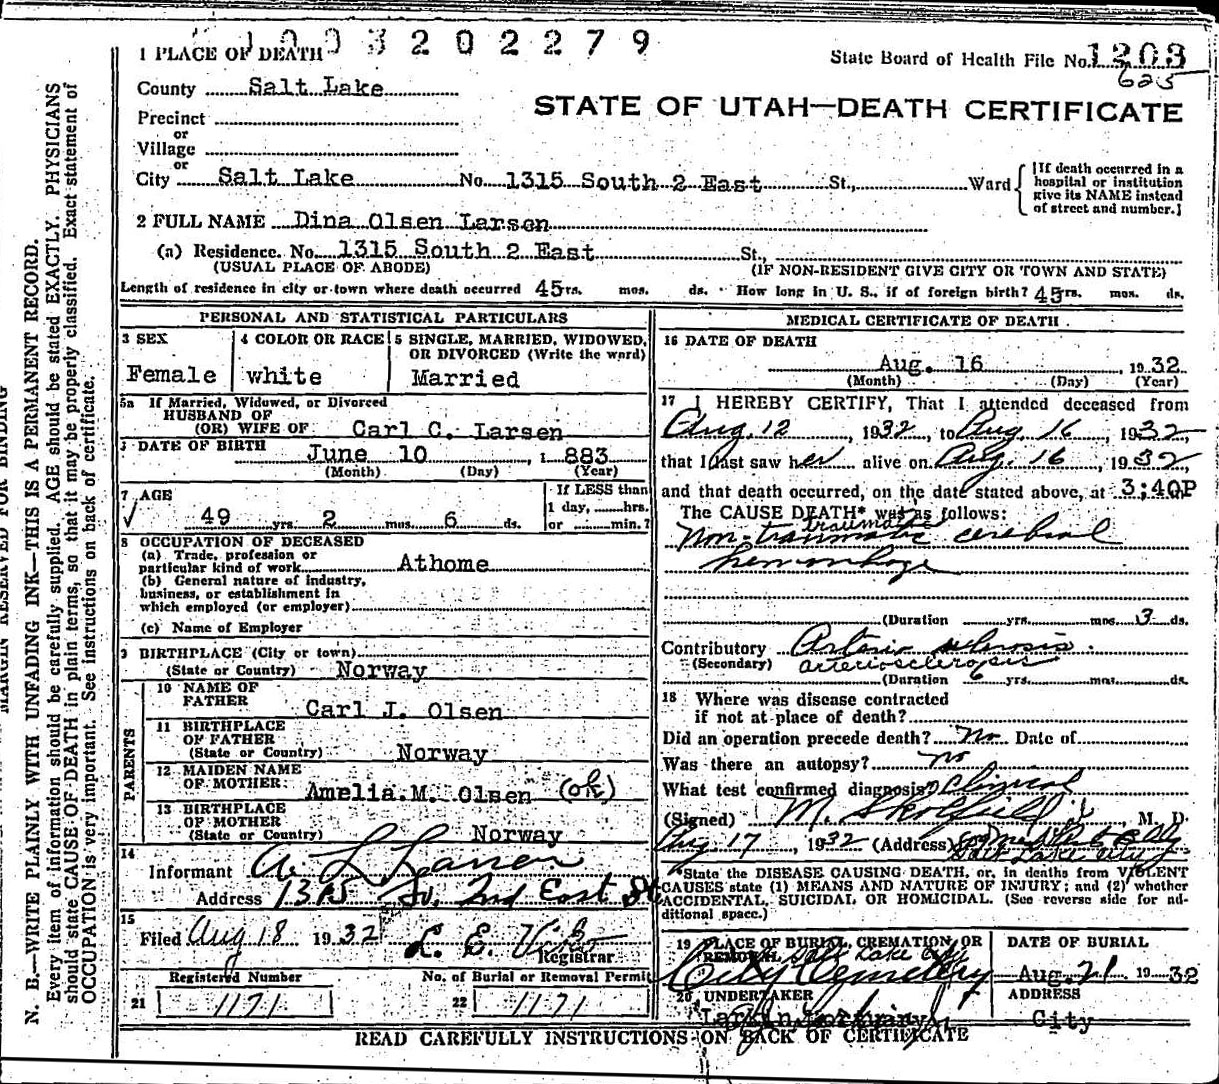 1003202279
1 PLACE OF DEATH
State Board of Health File No. 1203
625
County Salt Lake
STATE OF UTAH—DEATH CERTIFICATE
Precinct
or
Village
or
City Salt Lake No. 1315 South 2 East St., Ward
[If death occurred in a
hospital or institution
give its NAME instead
of street and number.]
2 FULL NAME Dina Olsen Larsen
(a) Residence. No. 1315 South 2 East St.,
(USUAL PLACE OF ABODE) (IF NON-RESIDENT GIVE CITY OR TOWN AND STATE)
Length of residence in city or town where death occurred 45 yrs. mos. ds. How long in U. S., if of foreign birth? 45 yrs. mos. ds.
PERSONAL AND STATISTICAL PARTICULARS
3 SEX
Female
4 COLOR OR RACE
white
5 SINGLE, MARRIED, WIDOWED,
OR DIVORCED (Write the word)
Married
5a If Married, Widowed, or Divorced
HUSBAND OF
(OR) WIFE OF Carl C. Larsen
DATE OF BIRTH June 10, 1883
(Month) (Day) (Year)
7 AGE
√ 49 yrs. 2 mos. 6 ds.
If LESS than
1 day, hrs.
or min.?
8 OCCUPATION OF DECEASED
(a) Trade, profession or
particular kind of work Athome
(b) General nature of industry,
business, or establishment in
which employed (or employer)
(c) Name of Employer
9 BIRTHPLACE (City or town)
(State or Country) Norway
PARENTS
10 NAME OF
FATHER Carl J. Olsen
11 BIRTHPLACE
OF FATHER
(State or Country) Norway
12 MAIDEN NAME
OF MOTHER Amelia M. Olsen (ok)
13 BIRTHPLACE
OF MOTHER
(State or Country) Norway
14
Informant A. L. Larsen
Address 1315 So. 2nd East St
15
Filed Aug 18 1932 L. E.
Registrar
Registered Number
21 1171
No. of Burial or Removal Permit
22 1171
MEDICAL CERTIFICATE OF DEATH
16 DATE OF DEATH
Aug. 16, 1932
(Month) (Day) (Year)
17 I HEREBY CERTIFY, That I attended deceased from
Aug. 12, 1932, to Aug 16, 1932,
that I last saw her alive on Aug. 16, 1932
and that death occurred, on the date stated above, at 3:40P
The CAUSE DEATH* was as follows:
traumatic
Non-traumatic cerebral
hemorrhage
(Duration yrs. mos. 3 ds.
Contributory Arterio sclerosis.
(Secondary) arteriosclerosis
(Duration 6 yrs. mos. ds.
18 Where was disease contracted
if not at place of death?
Did an operation precede death? No Date of
Was there an autopsy? No
What test confirmed diagnosis? Clinical
(Signed) M. Skolfield, M. D.
Aug 17, 1932 (Address)
Salt Lake City
*State the DISEASE CAUSING DEATH, or, in deaths from VIOLENT
CAUSES state (1) MEANS AND NATURE OF INJURY; and (2) whether
ACCIDENTAL, SUICIDAL OR HOMICIDAL. (See reverse side for ad-
ditional space.)
19 PLACE OF BURIAL, CREMATION, OR
REMOVAL Salt Lake City
City Cemetery
DATE OF BURIAL
Aug. 21 1932
20 UNDERTAKER
Larkin Mortuary
ADDRESS
City
READ CAREFULLY INSTRUCTIONS ON BACK OF CERTIFICATE
MARGIN RESERVED FOR BINDING
N. B.—WRITE PLAINLY WITH UNFADING INK—THIS IS A PERMANENT RECORD.
Every item of information should be carefully supplied. AGE should be stated EXACTLY. PHYSICIANS
should state CAUSE OF DEATH in plain terms, so that it may be properly classified. Exact statement of
OCCUPATION is very important. See instructions on back of certificate.